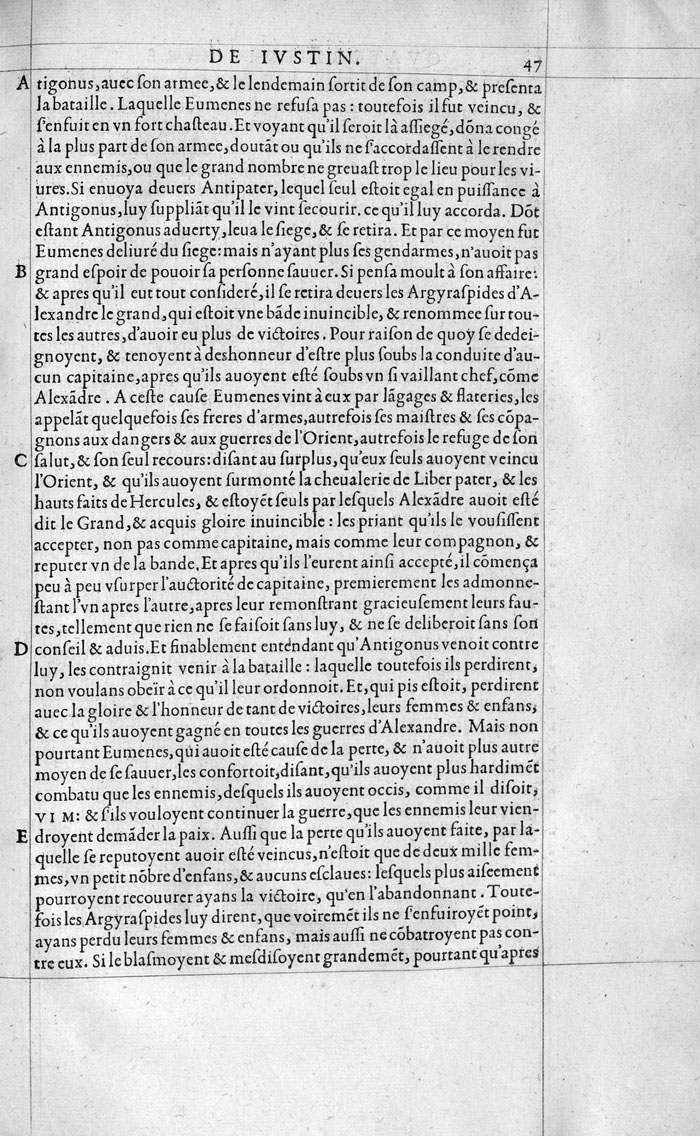 DE IVSTIN. 47
A tigonus, auec ſon armee, & le lendemain ſortit de ſon camp, & preſenta
la bataille. Laquelle Eumenes ne refuſa pas: toutefois il fut veincu, &
ſ'enfuit en vn fort chaſteau. Et voyant qu'il ſeroit là aſſiegé, dõna congé
à la plus part de ſon armee, doutãt ou qu'ils ne ſ'accordaſſent à le rendre
aux ennemis, ou que le grand nombre ne greuaſt trop le lieu pour les vi-
ures. Si enuoya deuers Antipater, lequel ſeul eſtoit egal en puiſſance à
Antigonus, luy ſuppliãt qu'il le vint ſecourir. ce qu'il luy accorda. Dõt
eſtant Antigonus aduerty, leua le ſiege, & ſe retira. Et par ce moyen fut
Eumenes deliuré du ſiege: mais n'ayant plus ſes gendarmes, n'auoit pas
B grand eſpoir de pouoir ſa perſonne ſauuer. Si penſa moult à ſon affaire:
& apres qu'il eut tout conſideré, il ſe retira deuers les Argyraſpides d'A-
lexandre le grand, qui eſtoit vne bãde inuincible, & renommee ſur tou-
tes les autres, d'auoir eu plus de victoires. Pour raiſon de quoy ſe dedei-
gnoyent, & tenoyent à deshonneur d'eſtre plus ſoubs la conduite d'au-
cun capitaine, apres qu'ils auoyent eſté ſoubs vn ſi vaillant chef, cõme
Alexãdre. A ceſte cauſe Eumenes vint à eux par lãgages & flateries, les
appelãt quelquefois ſes freres d'armes, autrefois ſes maiſtres & ſes cõpa-
gnons aux dangers & aux guerres de l'Orient, autrefois le refuge de ſon
C ſalut, & ſon ſeul recours: diſant au ſurplus, qu'eux ſeuls auoyent veincu
l'Orient, & qu'ils auoyent ſurmonté la cheualerie de Liber pater, & les
hauts faits de Hercules, & eſtoyẽt ſeuls par leſquels Alexãdre auoit eſté
dit le Grand, & acquis gloire inuincible: les priant qu'ils le vouſiſſent
accepter, non pas comme capitaine, mais comme leur compagnon, &
reputer vn de la bande. Et apres qu'ils l'eurent ainſi accepté, il cõmença
peu à peu vſurper l'auctorité de capitaine, premierement les admonne-
ſtant l'vn apres l'autre, apres leur remonſtrant gracieuſement leurs fau-
tes, tellement que rien ne ſe faiſoit ſans luy, & ne ſe deliberoit ſans ſon
D conſeil & aduis. Et finablement entendant qu'Antigonus venoit contre
luy, les contraignit venir à la bataille: laquelle toutefois ils perdirent,
non voulans obeïr à ce qu'il leur ordonnoit. Et, qui pis eſtoit, perdirent
auec la gloire & l'honneur de tant de victoires, leurs femmes & enfans,
& ce qu'ils auoyent gagné en toutes les guerres d'Alexandre. Mais non
pourtant Eumenes, qui auoit eſté cauſe de la perte, & n'auoit plus autre
moyen de ſe ſauuer, les confortoit, diſant, qu'ils auoyent plus hardimẽt
combatu que les ennemis, deſquels ils auoyent occis, comme il diſoit,
VI M: & ſ'ils vouloyent continuer la guerre, que les ennemis leur vien-
E droyent demãder la paix. Auſſi que la perte qu'ils auoyent faite, par la-
quelle ſe reputoyent auoir eſté veincus, n'eſtoit que de deux mille fem-
mes, vn petit nõbre d'enfans, & aucuns eſclaues: leſquels plus aiſeement
pourroyent recouurer ayans la victoire, qu'en l'abandonnant. Toute-
fois les Argyraſpides luy dirent, que voiremẽt ils ne ſ'enfuiroyẽt point,
ayans perdu leurs femmes & enfans, mais auſſi ne cõbatroyent pas con-
tre eux. Si le blaſmoyent & meſdiſoyent grandemẽt, pourtant qu'apres